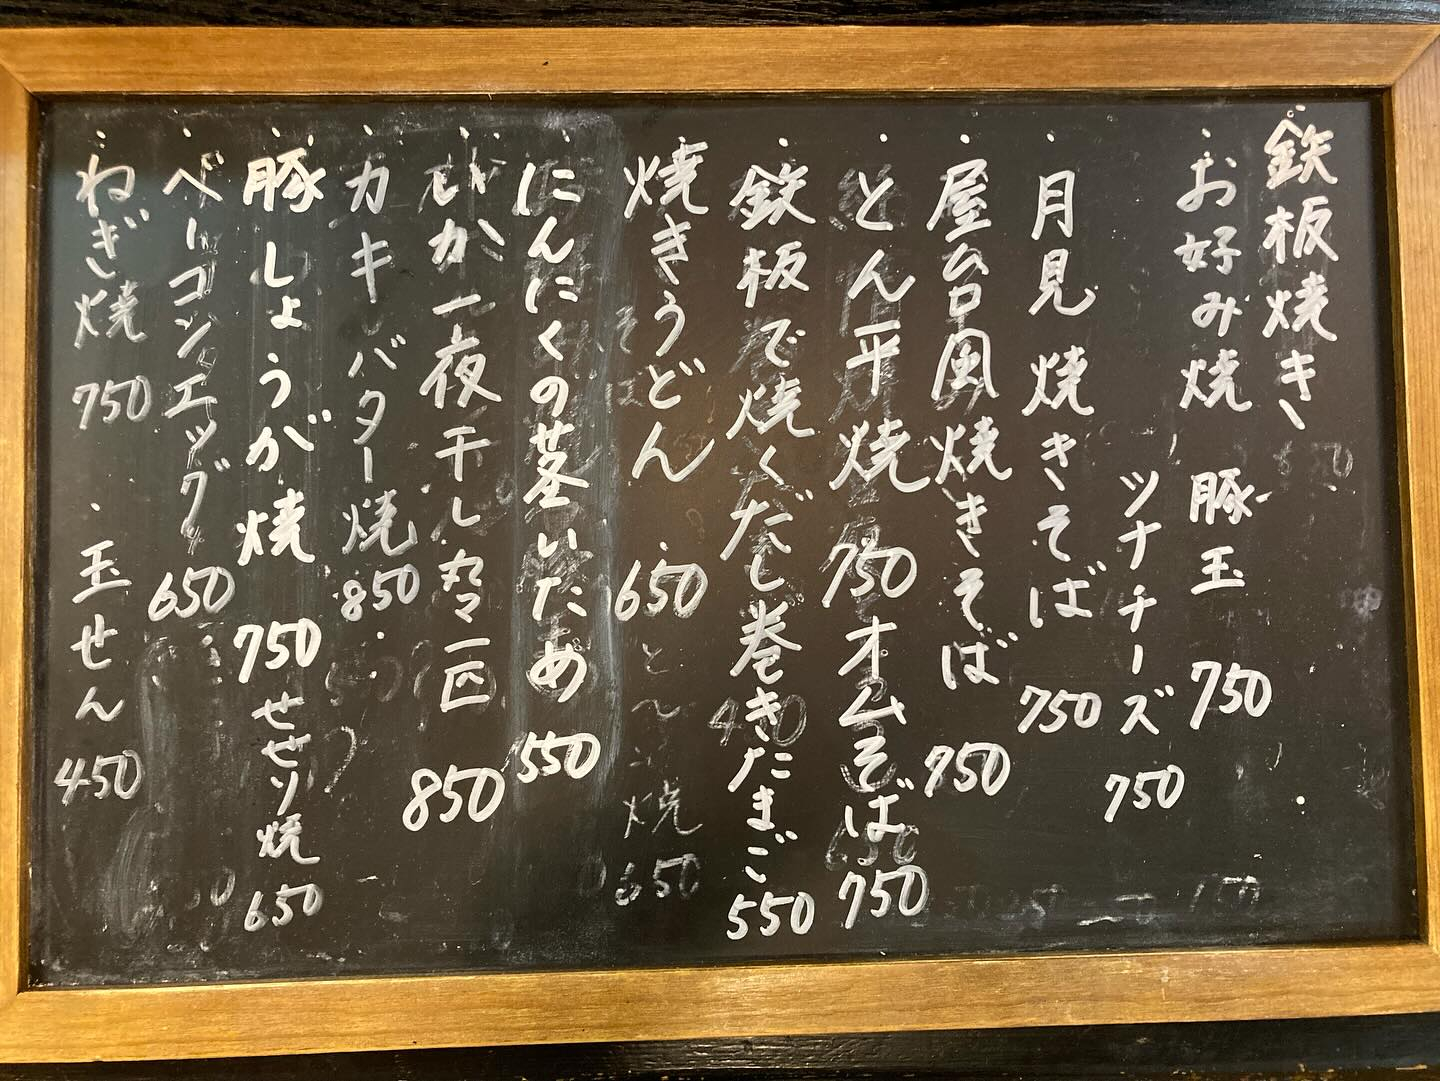 鉄板焼き
・お好み焼 豚玉 750
ツナチーズ 750
・月見焼きそば 750
・屋台風焼きそば 750
・とん平焼 750 オムそば 750
・鉄板で焼くだし巻きたまご 550
・焼きうどん 650
・にんにくの茎いため 550
・いか一夜干し丸々一匹 850
・カキバター焼 850
・豚しょうが焼 750 せせり焼 650
・ベーコンエッグ 650
・ねぎ焼 750 ・玉せん 450